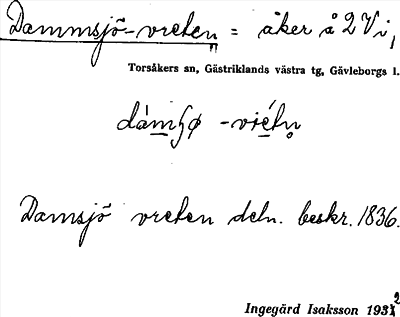 Dammsjö-vreten = åker å 2 Vi,
Torsåkers sn, Gästriklands västra tg, Gävleborgs l.
dàmʂø -vrétn̥
Damsjö vreten deln. beskr. 1836.
Ingegärd Isaksson 1932